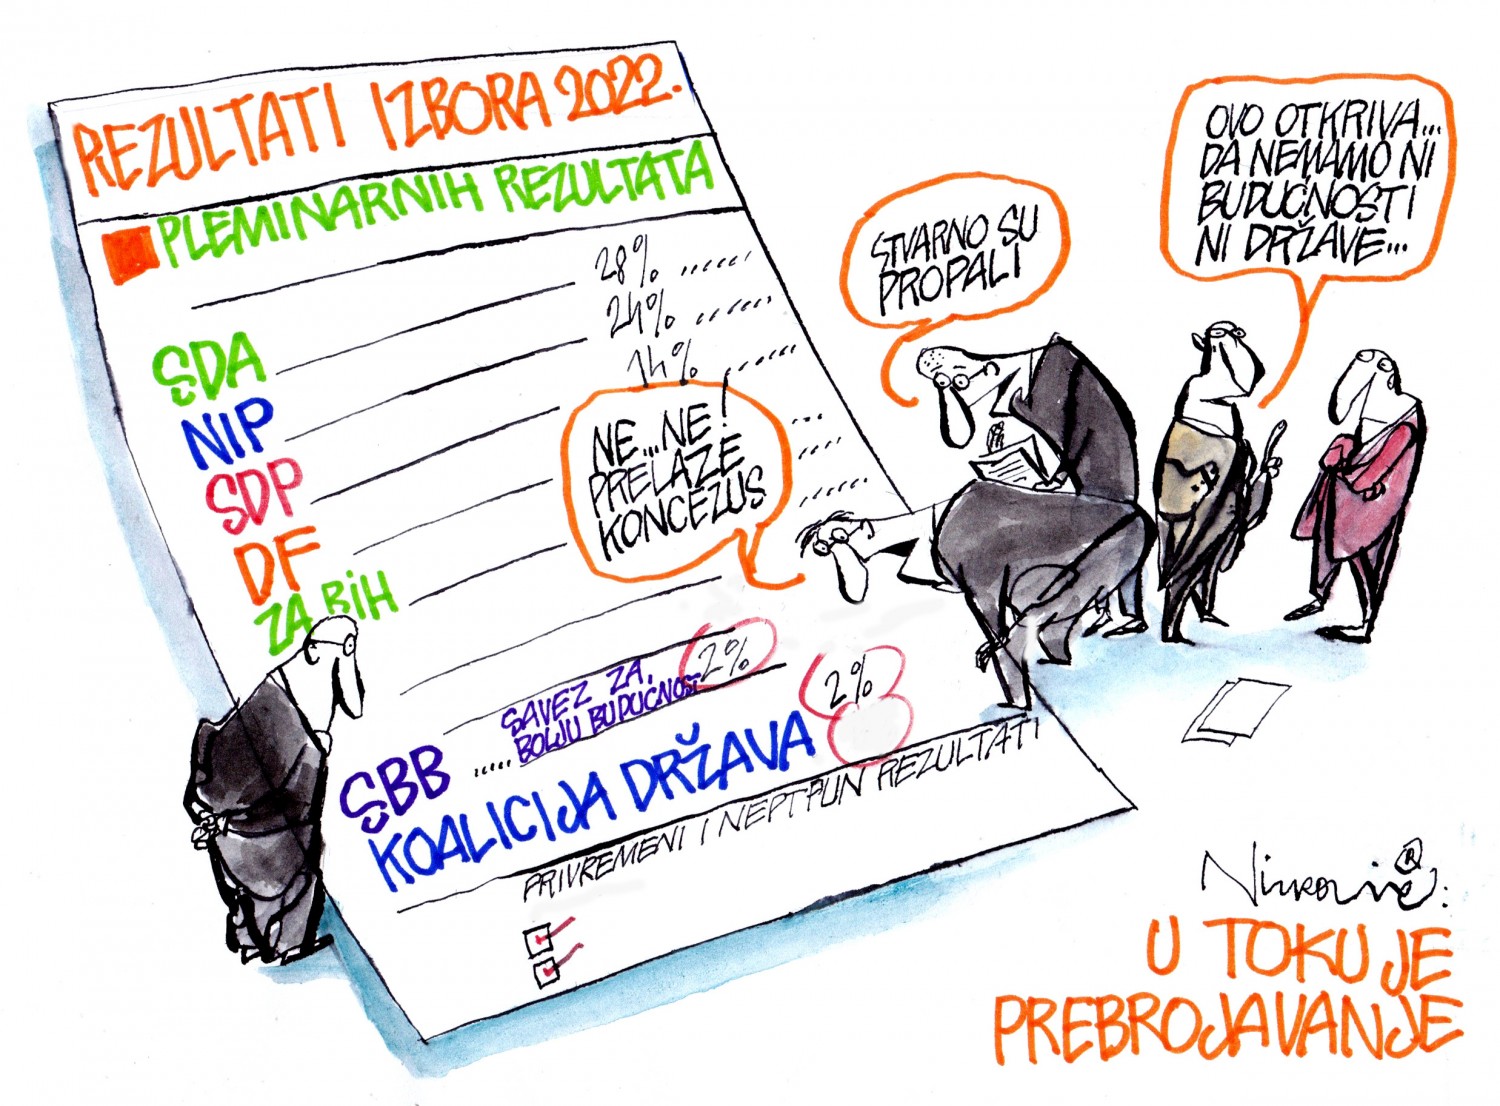 REZULTATI IZBORA 2022.
PLEMINARNIH REZULTATA
28%
SDA 24%
NIP 14%
SDP
DF
ZA BIH
SBB ..... SAVEZ ZA
BOLJU BUDUĆNOST 2%
KOALICIJA DRŽAVA 2%
PRIVREMENI I NEPTPUN REZULTATI
NE...NE!
PRELAZE
KONCEZUS
STVARNO SU
PROPALI
OVO OTKRIVA...
DA NEMAMO NI
BUDUĆNOSTI
NI DRŽAVE...
U TOKU JE
PREBROJAVANJE